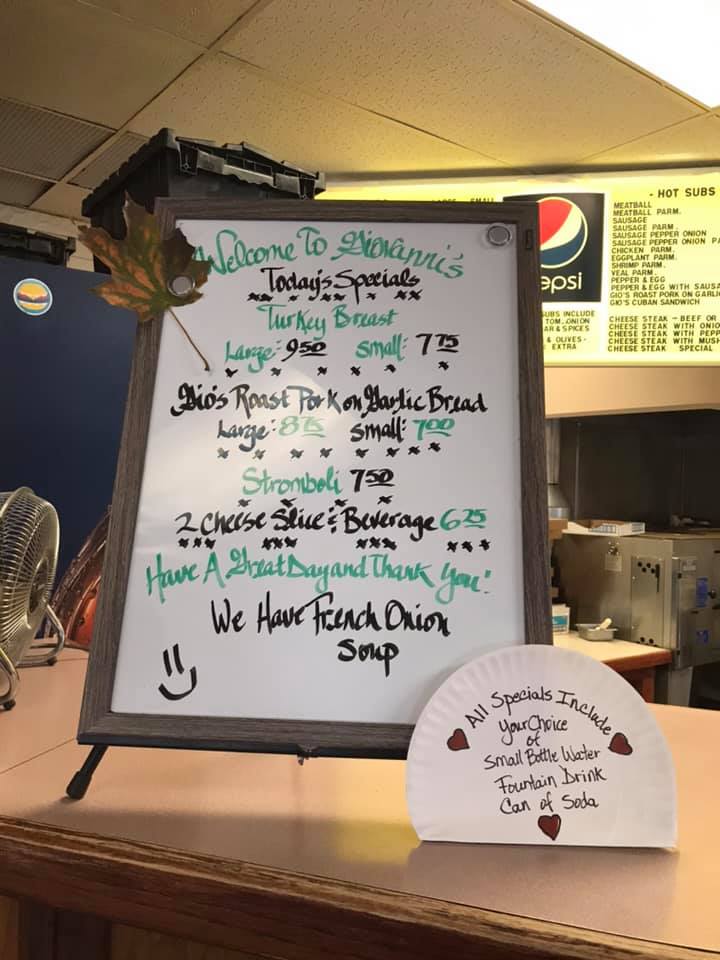 Welcome To Giovanni's
Today's Specials
Turkey Breast
Large: 9.50 Small: 7.75
Gio's Roast Pork on Garlic Bread
Large: 8.75 Small: 7.00
Stromboli 7.50
2 Cheese Slice & Beverage 6.25
Have A Great Day and Thank You!
We Have French Onion
Soup
All Specials Include
Your Choice
of
Small Bottle Water
Fountain Drink
Can of Soda
epsi
- HOT SUBS
MEATBALL
MEATBALL PARM.
SAUSAGE
SAUSAGE PARM.
SAUSAGE PEPPER ONION
SAUSAGE PEPPER ONION PA
CHICKEN PARM.
EGGPLANT PARM.
SHRIMP PARM.
VEAL PARM.
PEPPER & EGG
PEPPER & EGG WITH SAUSA
GIO'S ROAST PORK ON GARLI
GIO'S CUBAN SANDWICH
CHEESE STEAK - BEEF OR
CHEESE STEAK WITH ONIO
CHEESE STEAK WITH PEPP
CHEESE STEAK WITH MUSH
CHEESE STEAK SPECIAL
UBS INCLUDE
TOM. ONION
AR & SPICES
& OLIVES -
EXTRA